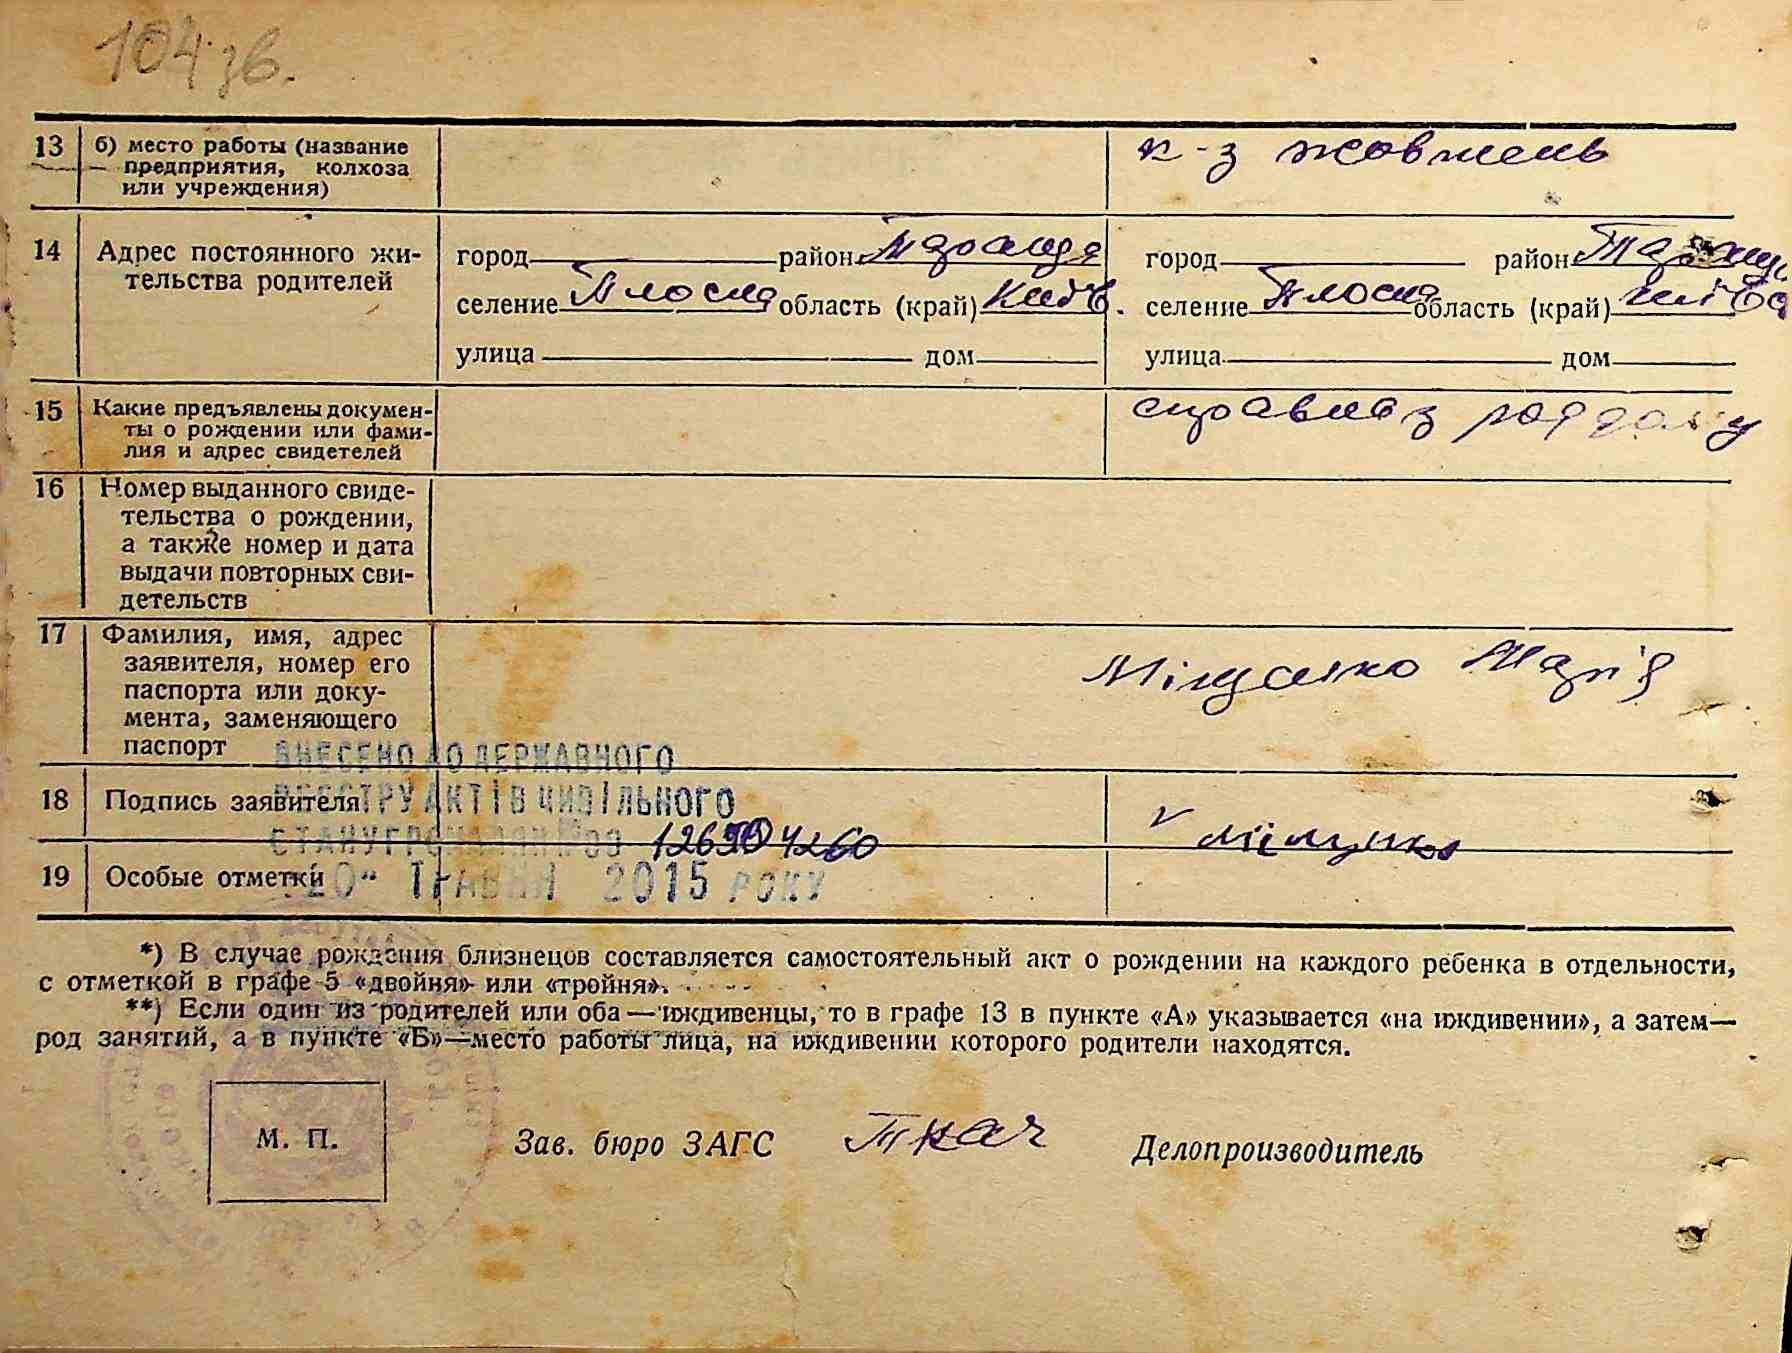 104 зв.
13 б) место работы (название предприятия, колхоза или учреждения) к-з жовтень
14 Адрес постоянного жительства родителей
город район Тараща город район
селение Плоска область (край) Київ. селение Плоска область (край)
улица дом улица дом
15 Какие предъявлены документы о рождении или фамилия и адрес свидетелей справка з роддому
16 Номер выданного свидетельства о рождении, а также номер и дата выдачи повторных свидетельств
17 Фамилия, имя, адрес заявителя, номер его паспорта или документа, заменяющего паспорт Міщенко Марія
ВНЕСЕНО ДО ДЕРЖАВНОГО
РЕЄСТРУ АКТІВ ЦИВІЛЬНОГО
СТАНУ ГРОМАДЯН
18 Подпись заявителя
19 Особые отметки
"20" ТРАВНЯ 2015 РОКУ
*) В случае рождения близнецов составляется самостоятельный акт о рождении на каждого ребенка в отдельности,
с отметкой в графе 5 «двойня» или «тройня».
**) Если один из родителей или оба—иждивенцы, то в графе 13 в пункте «А» указывается «на иждивении», а затем—
род занятий, а в пункте «Б»—место работы лица, на иждивении которого родители находятся.
М. П. Зав. бюро ЗАГС Ткач Делопроизводитель